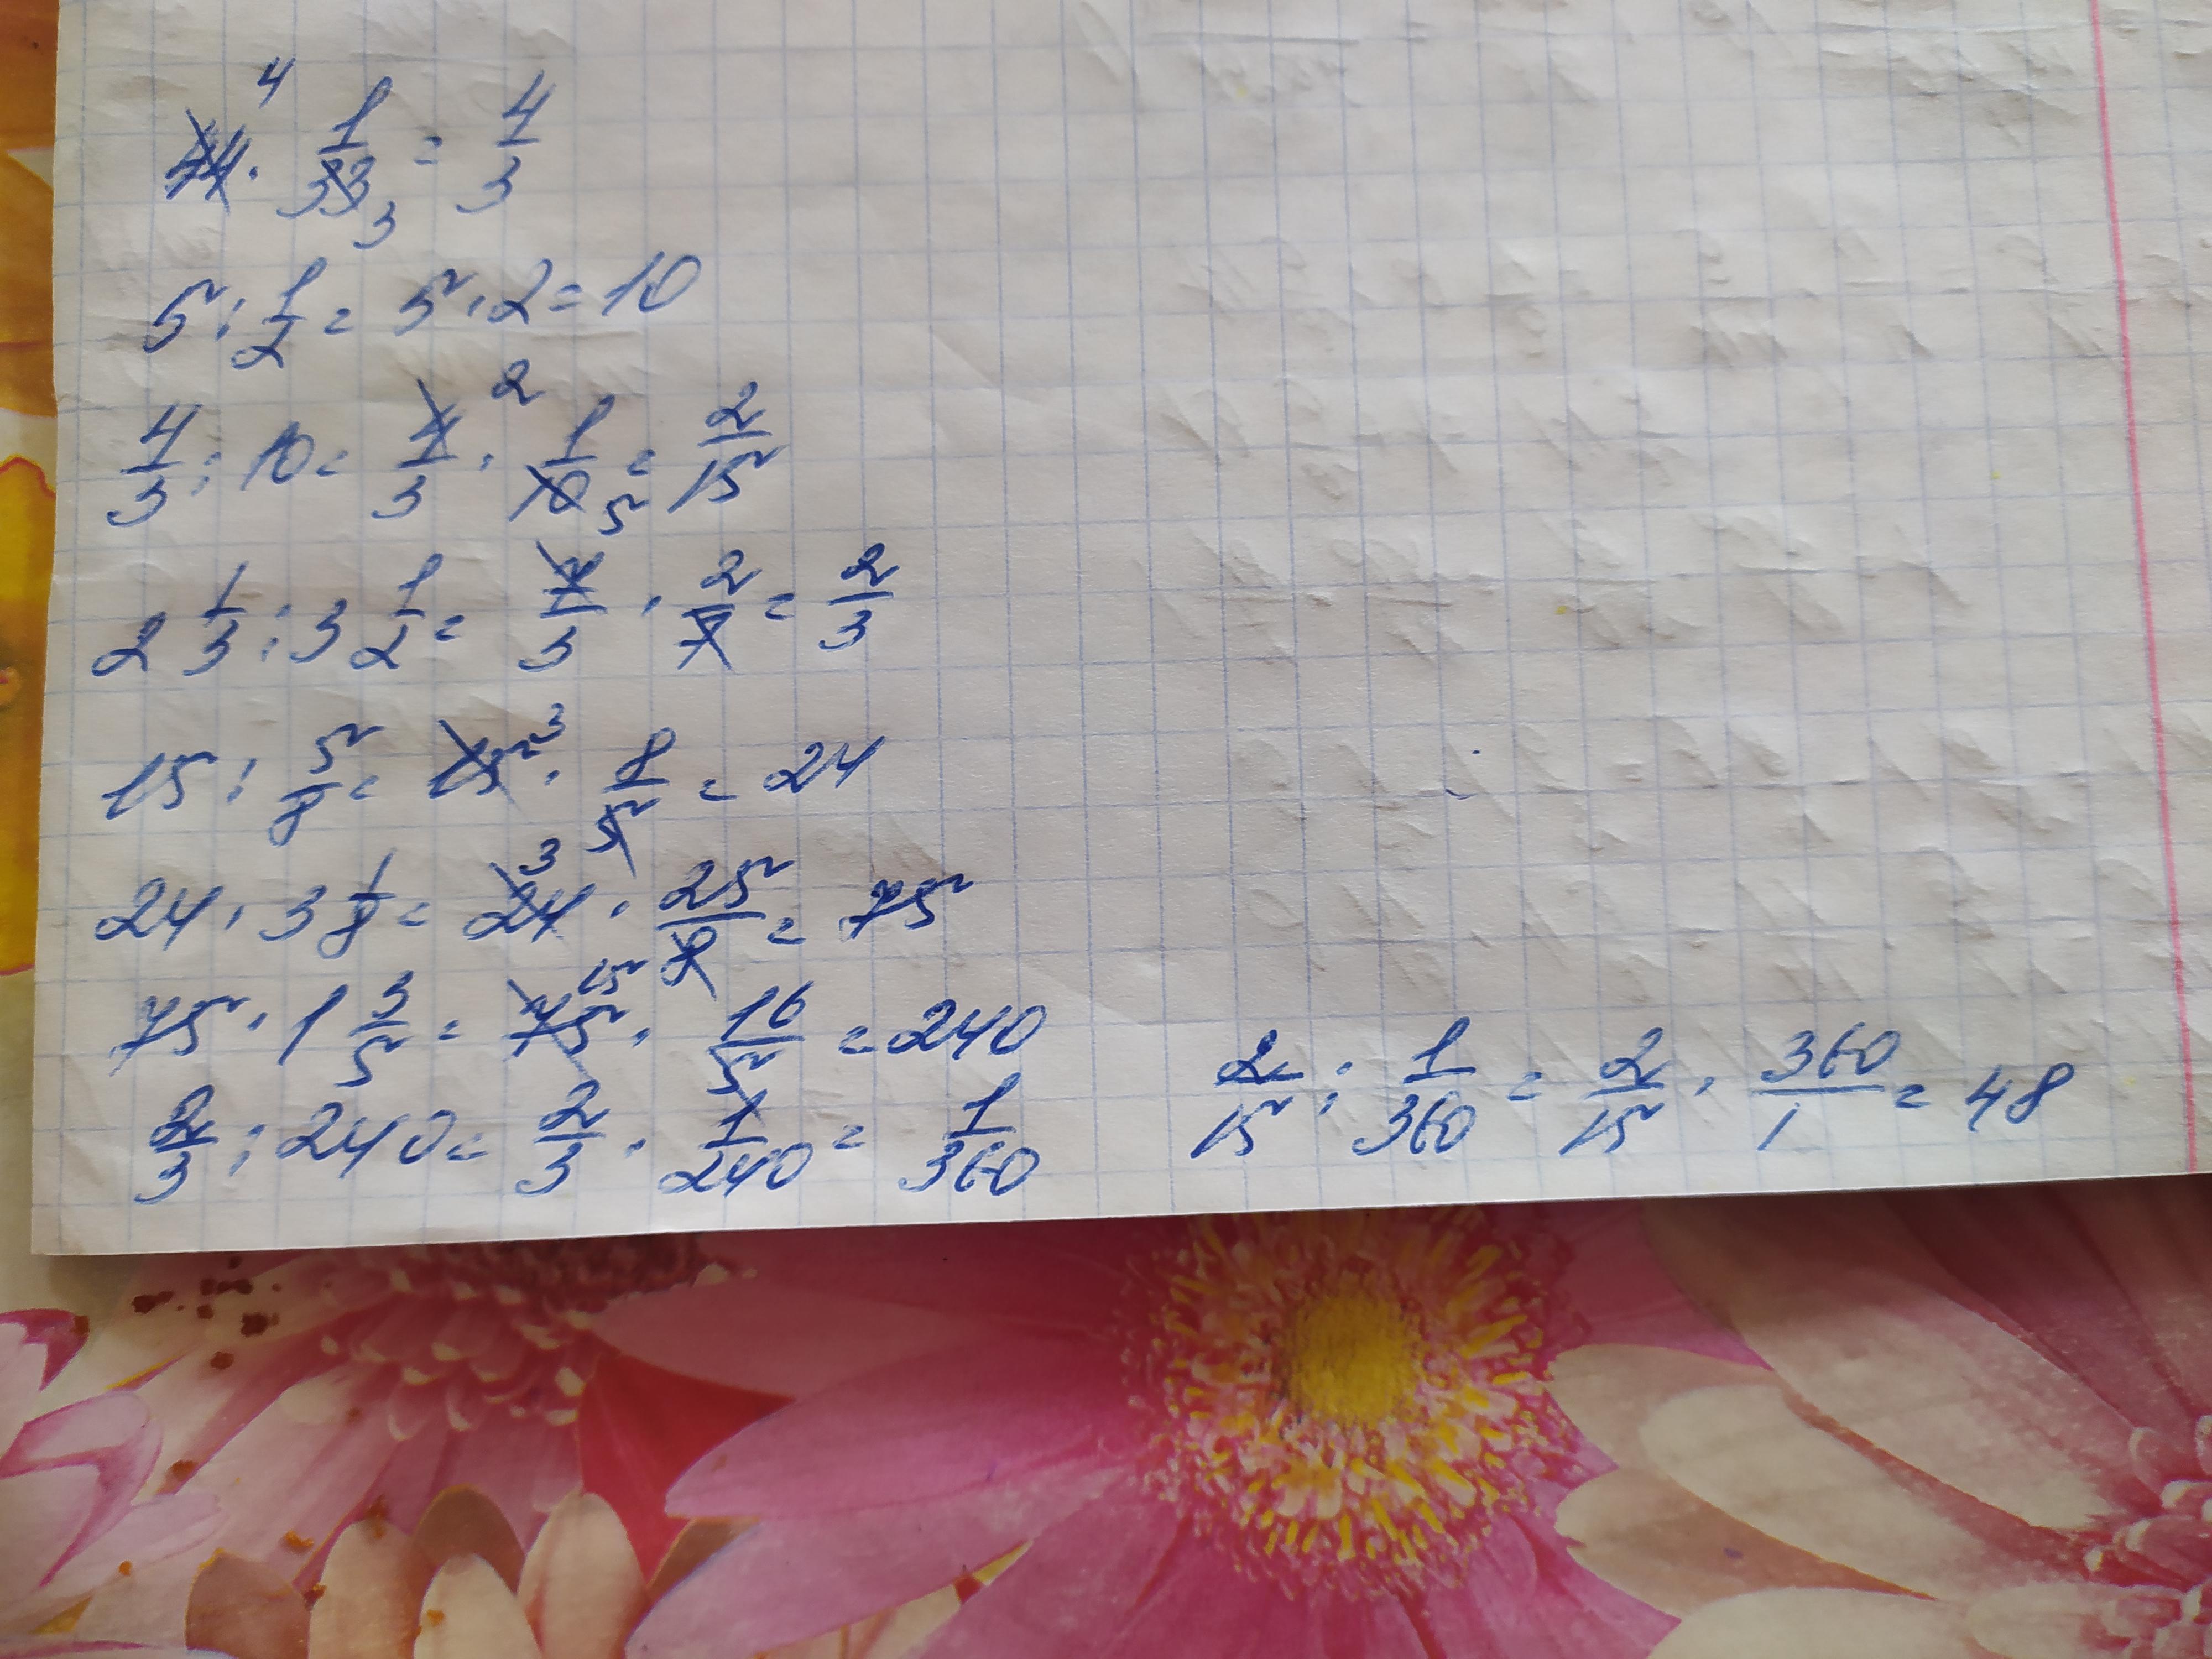 44 · 1/33 = 4/3
5 : 1/2 = 5 · 2 = 10
4/3 : 10 = 4/3 · 1/10 = 2/15
2 1/3 : 3 1/2 = 7/3 · 2/7 = 2/3
15 : 5/8 = 15 · 8/5 = 24
24 · 3 1/8 = 24 · 25/8 = 75
75 · 1 3/5 = 75 · 16/5 = 240
2/3 : 240 = 2/3 · 1/240 = 1/360
2/15 : 1/360 = 2/15 · 360/1 = 48